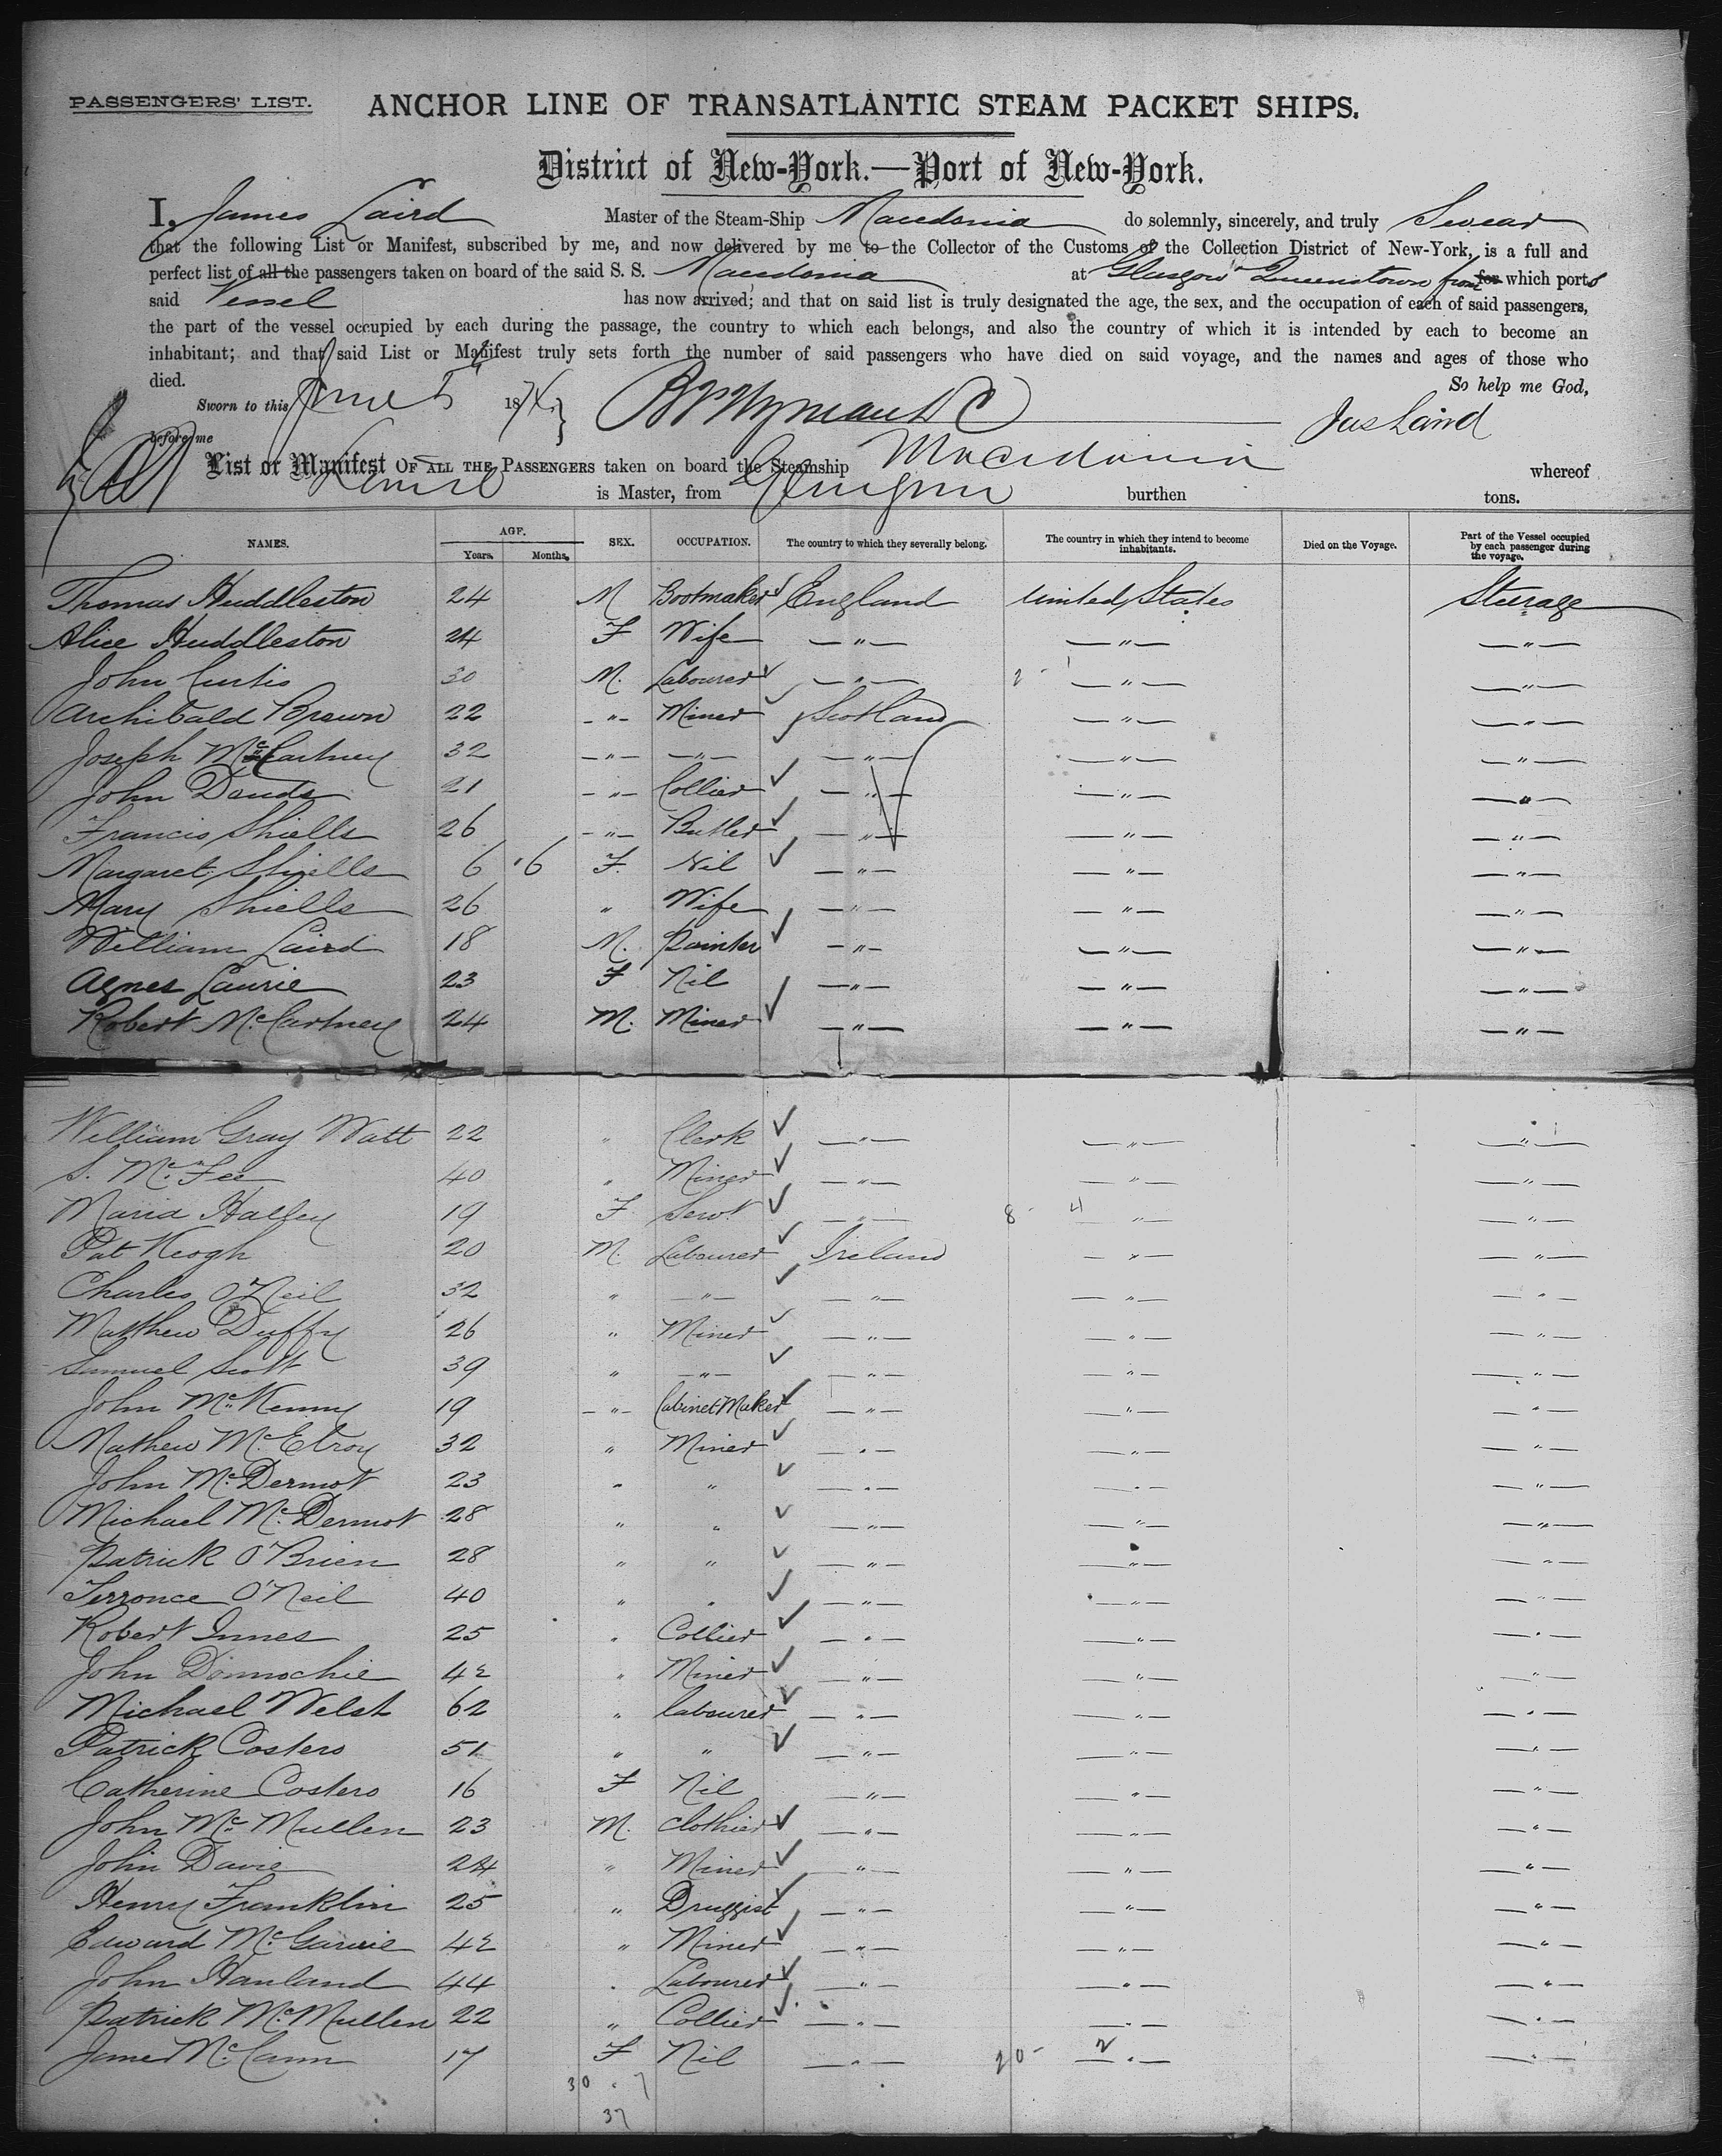 PASSENGERS' LIST. ANCHOR LINE OF TRANSATLANTIC STEAM PACKET SHIPS.
District of New-York.—Port of New-York.
I, James Laird Master of the Steam-Ship Macedonia do solemnly, sincerely, and truly Swear
that the following List or Manifest, subscribed by me, and now delivered by me to the Collector of the Customs of the Collection District of New-York, is a full and
perfect list of all the passengers taken on board of the said S. S. Macedonia at Glasgow Queenstown from for which ports
said Vessel has now arrived; and that on said list is truly designated the age, the sex, and the occupation of each of said passengers,
the part of the vessel occupied by each during the passage, the country to which each belongs, and also the country of which it is intended by each to become an
inhabitant; and that said List or Manifest truly sets forth the number of said passengers who have died on said voyage, and the names and ages of those who
died. So help me God,
Sworn to this June 5 1874 Jas Laird
before me
List or Manifest OF ALL THE PASSENGERS taken on board the Steamship Macedonia whereof
Laird is Master, from Glasgow burthen tons.
NAMES. AGE. Years. Months. SEX. OCCUPATION. The country to which they severally belong. The country in which they intend to become inhabitants. Died on the Voyage. Part of the Vessel occupied by each passenger during the voyage.
Thomas Huddleston 24 M Bootmaker England United States Steerage
Alice Huddleston 24 F Wife —"— —"— —"—
John Curtis 30 M. Labourer —"— 2 - 1 —"— —"—
Archibald Brown 22 -"- Miner Scotland —"— —"—
Joseph McCartney 32 -"- —"— —"— —"— —"—
John Douds 21 -"- Collier —"— —"— —"—
Francis Shiells 26 -"- Butler —"— —"— —"—
Margaret Shiells 6 6 F. Nil —"— —"— —"—
Mary Shiells 26 " Wife —"— —"— —"—
William Laird 18 M. Painter —"— —"— —"—
Agnes Laurie 23 F Nil —"— —"— —"—
Robert McCartney 24 M. Miner —"— —"— —"—
William Gray Watt 22 " Clerk —"— —"— —"—
S. McFee 40 " Miner —"— —"— —"—
Maria Halfey 19 F Servt —"— 8 - 4 —"— —"—
Pat Keogh 20 M. Labourer Ireland —"— —"—
Charles O'Neil 32 " —"— —"— —"— —"—
Matthew Duffy 26 " Miner —"— —"— —"—
Samuel Scott 39 " —"— —"— —"— —"—
John McKenny 19 -"- Cabinet Maker —"— —"— —"—
Mathew McElroy 32 " Miner —"— —"— —"—
John McDermot 23 " " —"— —"— —"—
Michael McDermot 28 " " —"— —"— —"—
Patrick O'Brien 28 " " —"— —"— —"—
Terronce O'Neil 40 " " —"— —"— —"—
Robert Innes 25 " Collier —"— —"— —"—
John Donnochie 42 " Miner —"— —"— —"—
Michael Welsh 62 " Labourer —"— —"— —"—
Patrick Costero 51 " " —"— —"— —"—
Catherine Costero 16 F Nil —"— —"— —"—
John McMullen 23 M. Clothier —"— —"— —"—
John Davie 24 " Miner —"— —"— —"—
Henry Franklin 25 " Druggist —"— —"— —"—
Edward McGarrie 42 " Miner —"— —"— —"—
John Hanland 44 " Labourer —"— —"— —"—
Patrick McMullen 22 " Collier —"— —"— —"—
McCann 17 F Nil —"— 20 - 2 —"— —"—
30 . 7
37